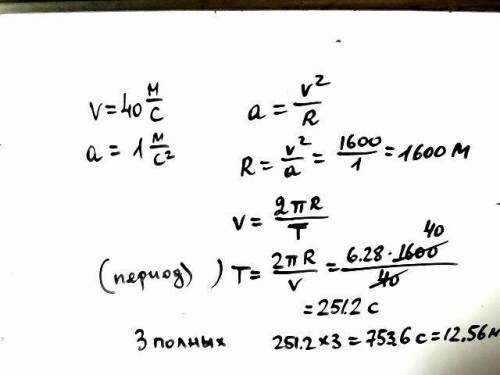 v = 40 м/с
a = v²/R
a = 1 м/с²
R = v²/a = 1600/1 = 1600 м
v = 2πR/T
(период) ) T = 2πR/v = 6.28 · 1600/40 40
= 251.2 с
3 полных 251.2 × 3 = 753.6 с = 12.56 м